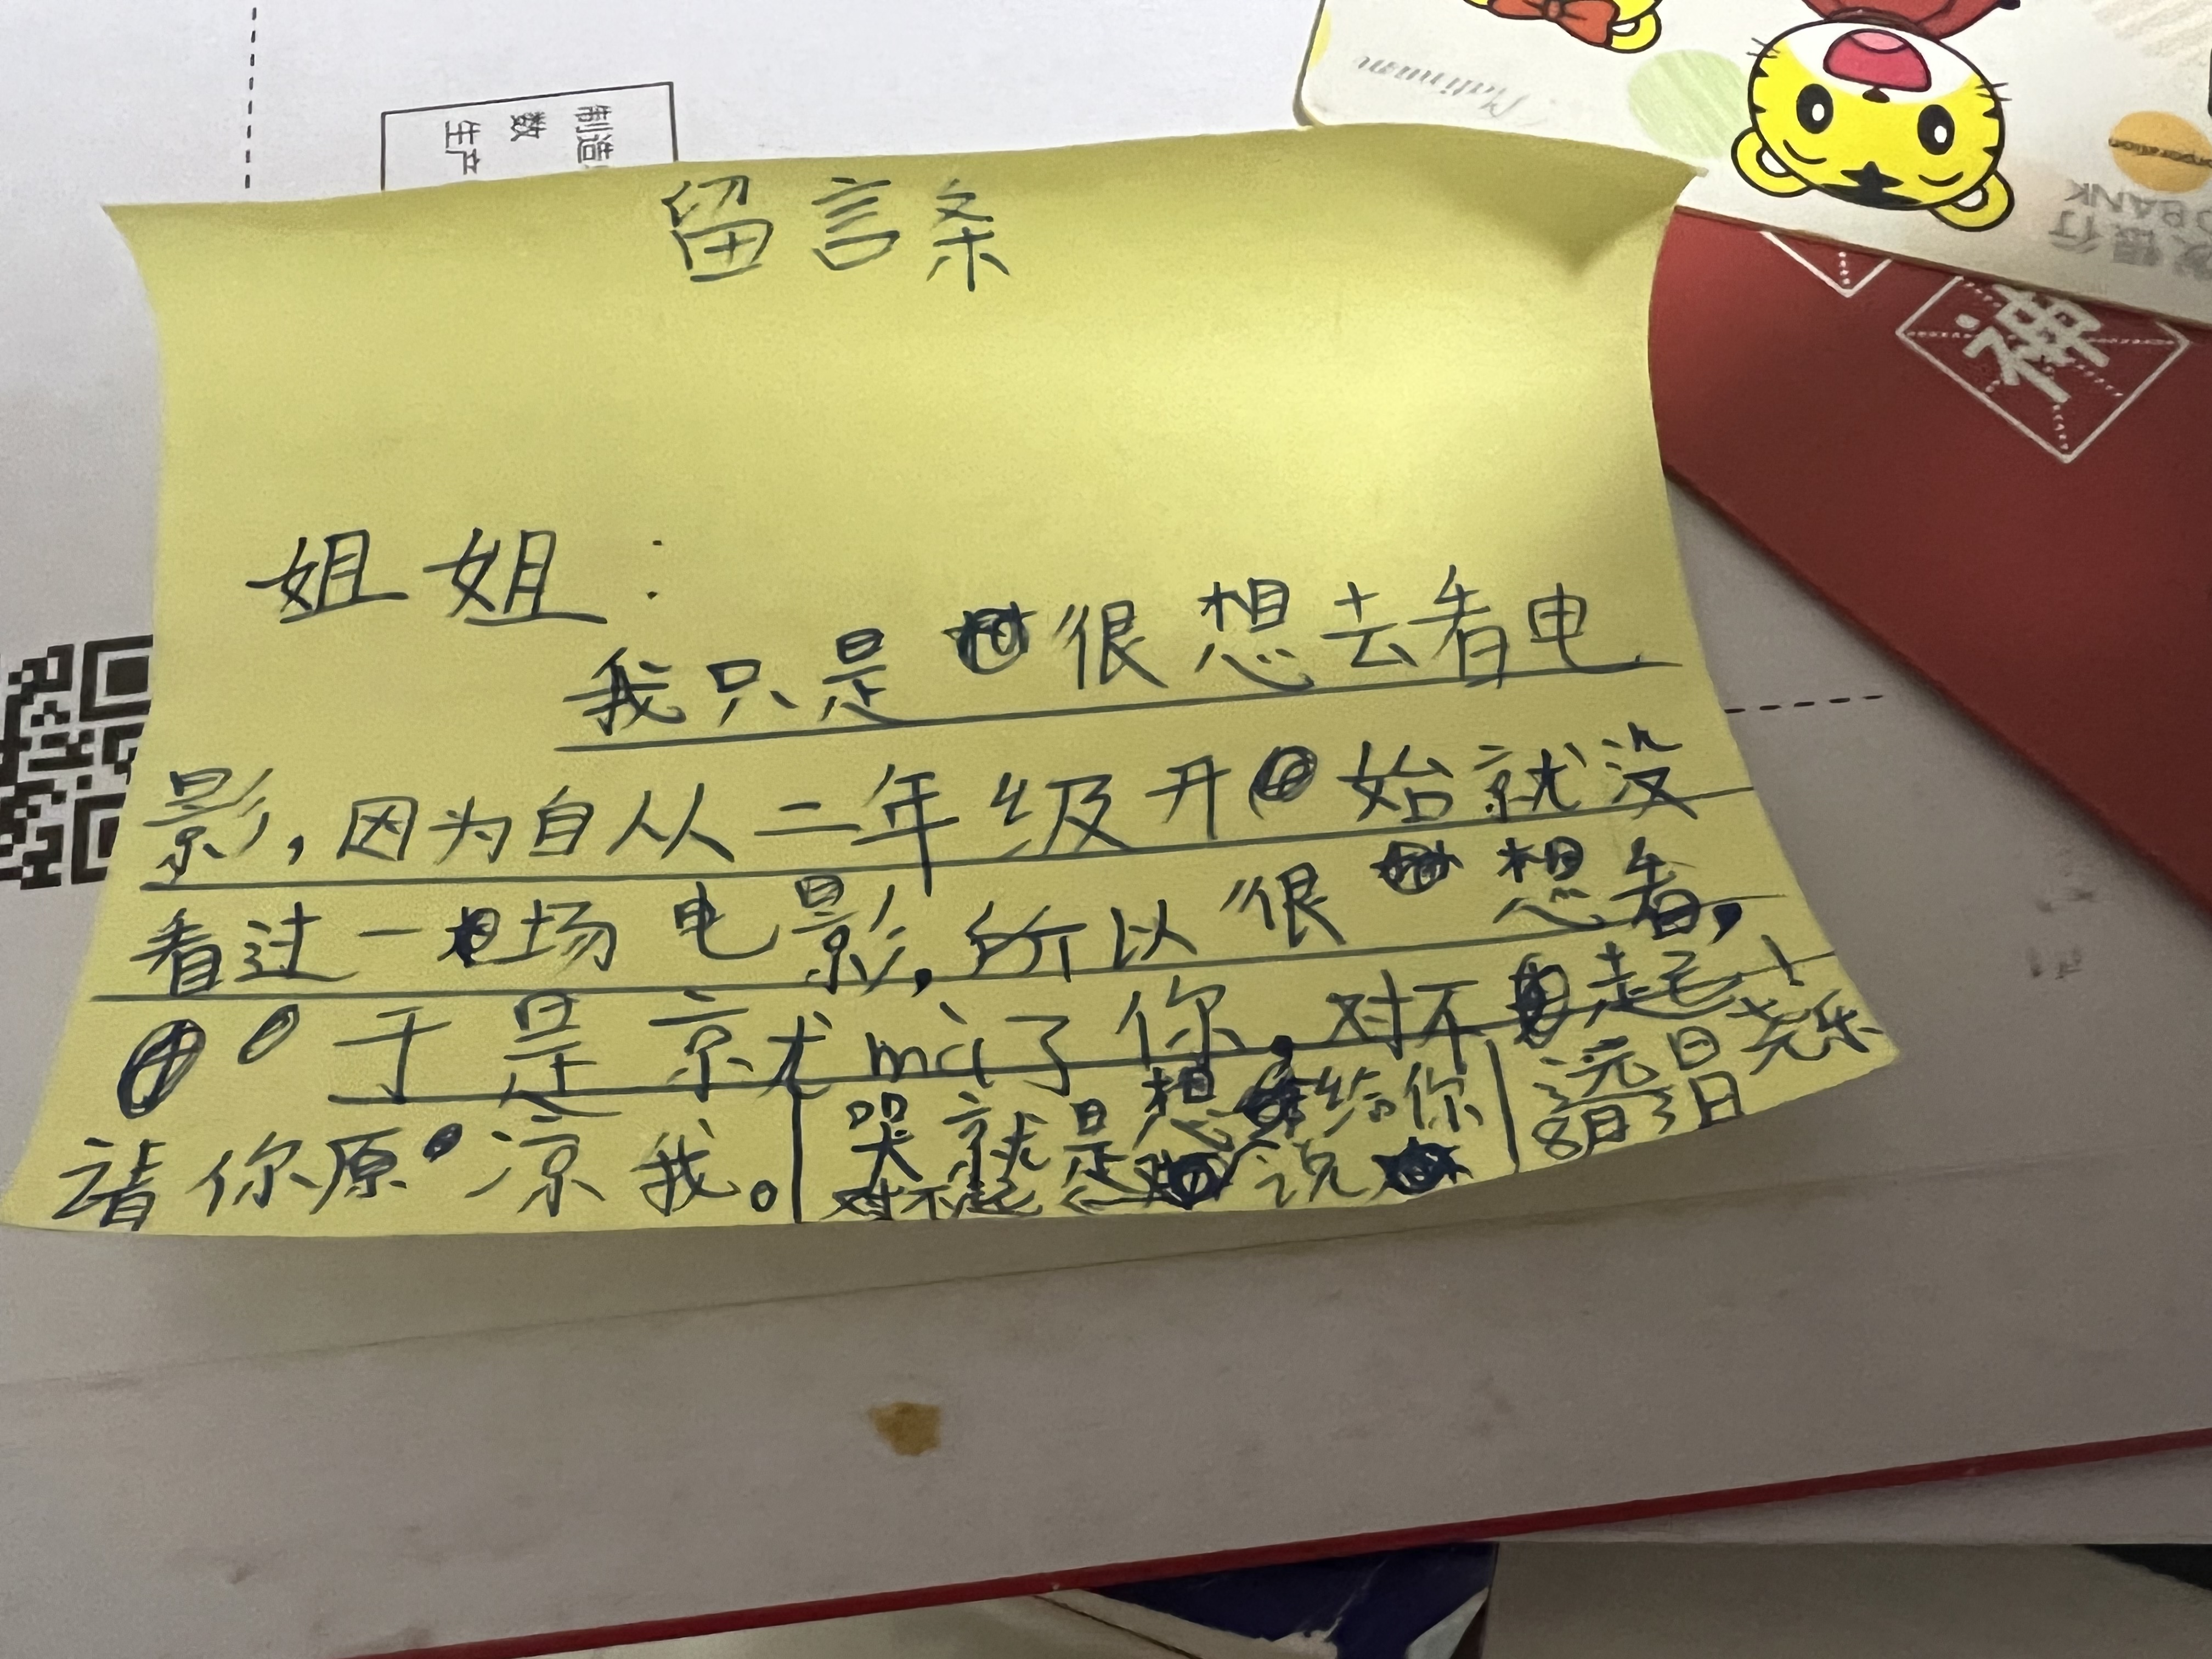 制造
数
生产
Multinumi
orporation
BANK
银行
神
留言条
姐姐:
我只是很想去看电
影,因为自从二年级开始就没
看过一场电影,所以很想看,
于是就mà了你,对不起!
请你原凉我。
哭就是想给你
说
对不起
8月3日